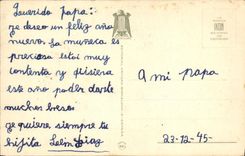 Querido papa:
Te deseo un feliz año
nuevo. la muñeca es
preciosa estoi muy
contenta y quisiera
este año poder darte
muchos besos
Te quiere siempre tu
hijita
A mi papa
23-12-45-